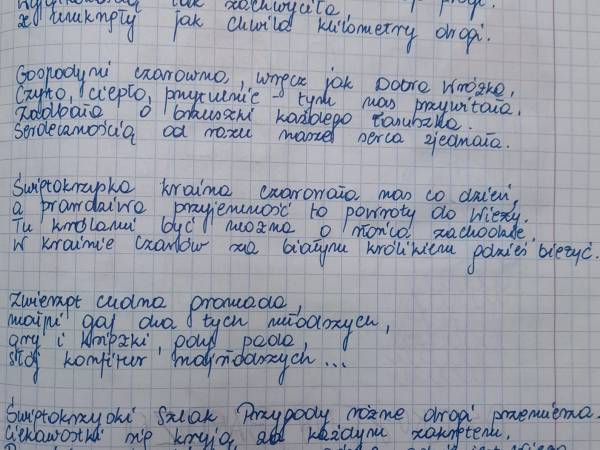 tak zachwyciła
że umknęły jak chwila kilometry drogi.
Gospodyni czarowna, wręcz jak Dobra Wróżka,
Czysto, ciepło, przytulnie – tym nas przywitała.
Zadbała o brzuszki każdego Łasuszka.
Serdecznością od razu nasze serca zjednała.
Świętokrzyska kraina czarowała nas co dzień,
a prawdziwa przyjemność to powroty do Wieży.
Tu królami być można o słońca zachodzie,
W krainie Czarów za białym królikiem gdzieś bieżyć.
Zwierząt cudna gromada,
małpi gaj dla tych młodszych,
gry i książki, gdy pada,
stój konfitur najsłodszych...
Świętokrzyski Szlak Przygody różne drogi przemierza.
Ciekawostki się kryją za każdym zakrętem.